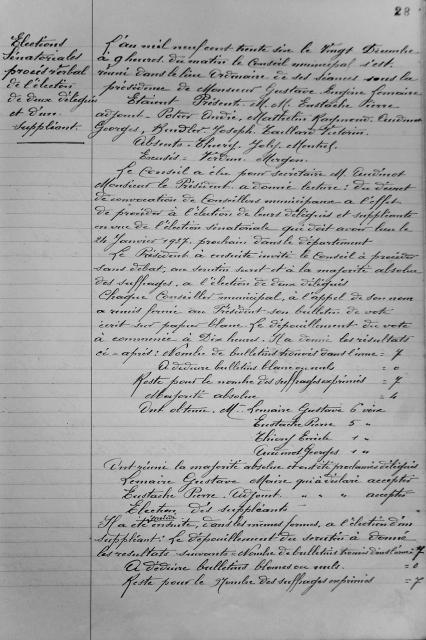 28
Elections
Sénatoreales
procès verbal
de l'élection
de deux délégués
et d'un
suppléant.
L'an mil neuf cent trente six le Vingt Décembre
à 9 heures du matin le Conseil municipal s'est
réuni dans le lieu ordinaire de ses séances sous la
présidence de Monsieur Gustave Lemaire
Etaient Présents M.M. Eustache Pierre
adjoint - André, Raymond,
Georges, Joseph,
Absents
Excusés
Le Conseil a élu pour secrétaire M.
Monsieur le Président a donné lecture : du décret
de convocation de Conseillers municipaux a l'effet
de procéder à l'élection de leurs délégués et suppléants
en vue de l'élection sénatoriale qui doit avoir lieu le
24 Janvier 1937 prochain dans le département
Le Président a ensuite invité le Conseil à procéder
sans débat, au scrutin secret et à la majorité absolue
des suffrages, a l'élection de deux délégués
Chaque Conseiller municipal, à l'appel de son nom
a remis fermé au Président son bulletin de vote
écrit sur papier blanc. Le dépouillement du vote
à commencé à Dix heures. Il a donné les résultats
ci-après : Nombre de bulletins trouvés dans l'urne = 7
A déduire bulletins blancs ou nuls = 0
Reste pour le nombre des suffrages exprimés = 7
Majorité absolue = 4
Ont obtenu. M. Lemaire Gustave 6 voix
Eustache Pierre 5 "
Thierry Emile 1 "
Georges 1 "
Ont réuni la majorité absolue et ont été proclamés délégués
Lemaire Gustave Maire qui a déclaré accepter
Eustache Pierre Adjoint " " " accepter
Election des suppléants
Il a été procédé ensuite, dans les mêmes formes, a l'élection d'un
suppléant : Le dépouillement du scrutin à donné
les résultats suivants = Nombre de bulletins trouvés dans l'urne = 7
A déduire bulletins blancs ou nuls. = 0
Reste pour le Nombre des suffrages exprimés = 7